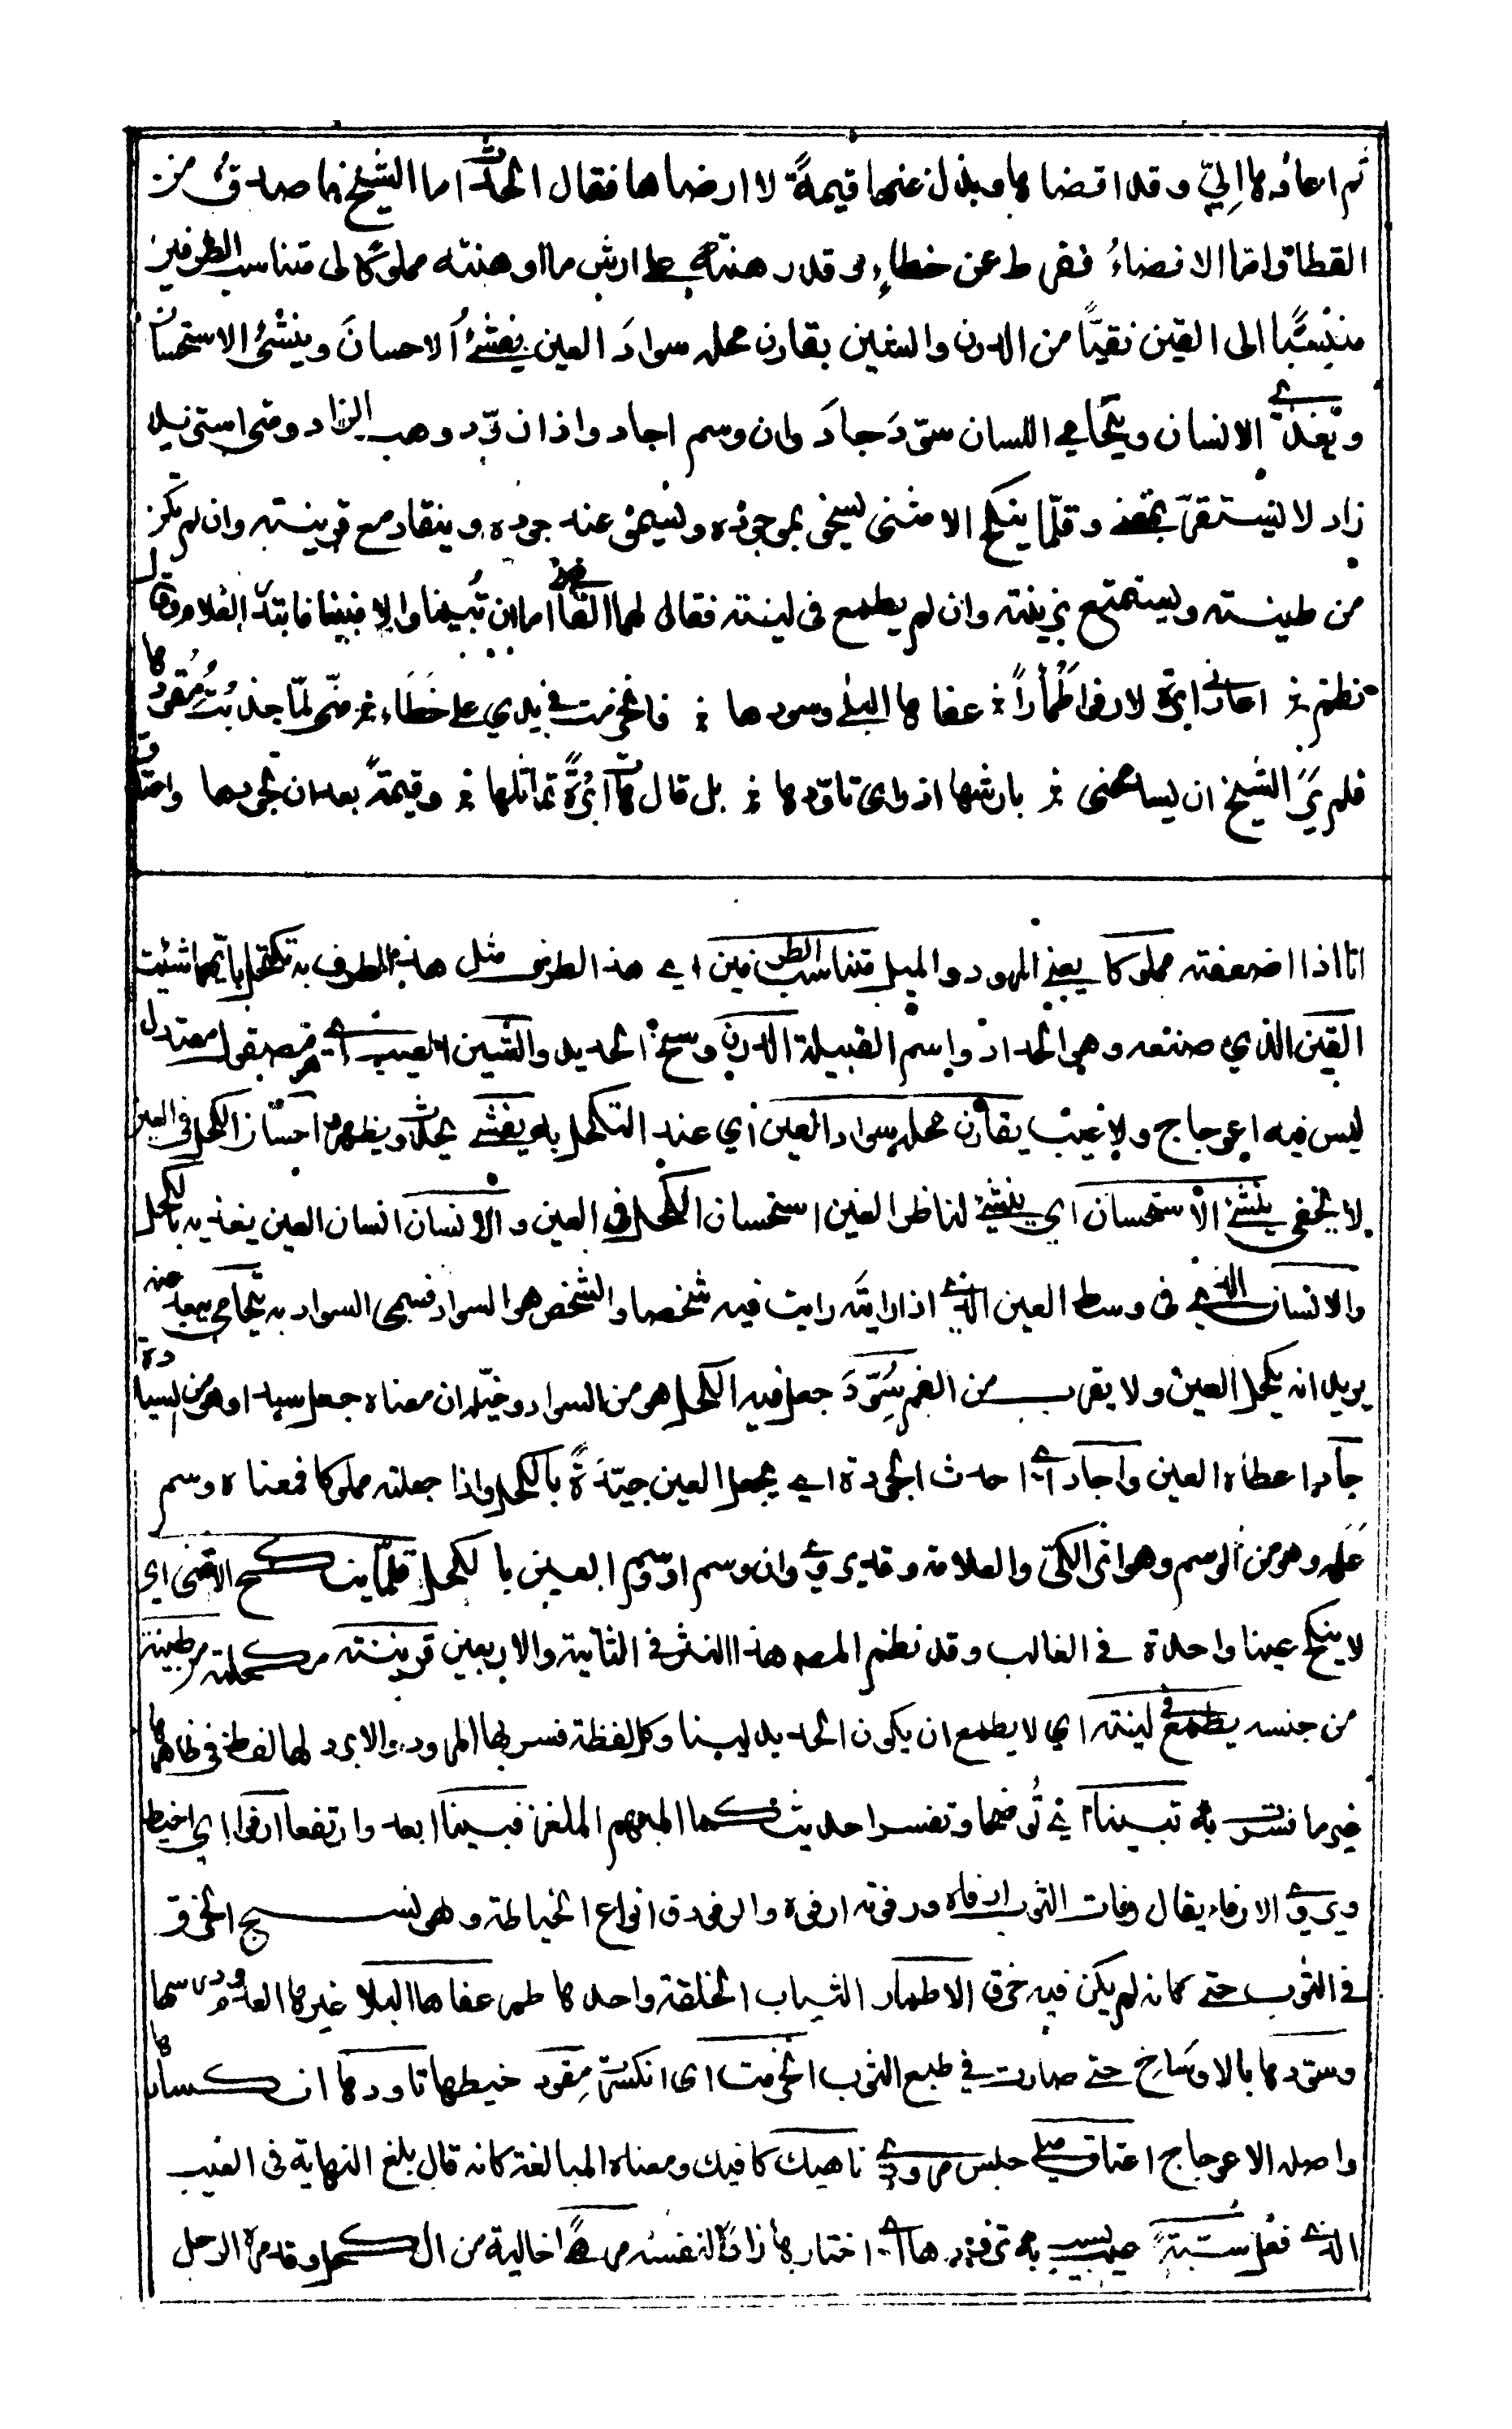 ثم اعادها اليّ وقد افضاها وبذل عنها قيمةً لا ارضاها فقال الحدث اما الشيخ فاصدق من
القطا واما الافضاءُ ففرط عن خطاءٍ وقد رهنته على ارش ما اوهنته مملوكًا لي متناسب الطرفين
منتسبًا الى القين نقيًّا من الدرن والشين يقارن محله سوادَ العين يفشئُ الاحسانَ وينشئُ الاستحسان
ويغذي الانسان ويتحامى اللسان ان سوّدَ جادَ وان وسم اجاد واذا زوّد وهب الزاد ومتى استزيد
زاد لا يستقرّ بمغنى وقلّما ينكح الا مثنى يسخى بموجوده ويسمو عند جوده وينقاد مع قرينته وان لم تكن
من طينته ويستمتع بزينته وان لم يطمع في لينته فقال لهما القاضي اما ان تُبينا والا فبينا فابتدر الغلام وقال
نظم ؞ اعارني ابرة لارفو اَطْمارًا ؞ عفاها البلى وسودها ؞ فانخرمت في يدي على خَطَاءٍ ؞ منّى لمّا جذبْتُ مِقْودها
فلم يَرَ الشيخ ان يسامحنى ؞ بارشها اذ راى تاوّدها ؞ بل قال هات ابرةً تماثلها ؞ وقيمةً بعد ان تجودها واعتاق
انا اذا اضعفته مملوكا يعني المرود والميل متناسب الطرفين اي هذا الطرف مثل هذا الطرف به تكتحل بايّهما شئت
القين الذي صنعه وهو الحداد واسم القبيلة الدرن وسخ الحديد والشين العيب اي هو مصقول معتدل
ليس فيه اعوجاج ولا عيب يقارن محله سواد العين اي عند التكحل به يفشئ يحدث ويظهر احسان الكحل في العين
لا يخفى ينشئ الاستحسان اي ينشئ لناظر العين استحسان الكحل في العين والانسان انسان العين يغذيه بالكحل
والانسان الذي في وسط العين الذي اذا رايته رايت فيه شخصا والشخص هو السواد فسمى السواد به يتحامى يبعد عنه
يريد انه يكحل العين ولا يقرب من الفم سَوّدَ جعل فيه الكحل هو من السواد وخيّل ان معناه جعل سيدا وهو من السيادة
جاد اعطاه العين واجاد اي احدث الجودة اي يجعل العين جيّدَةً بالكحل واذا جعلته مملوكا فمعناه وسم
عَلَم وهو من الوسم وهو اثر الكيّ والعلامة وقد يروى وان وسم اي وسم العين بالكحل قلّما ينكح الا مثنى اي
لا ينكح عينا واحدة في الغالب وقد نظم المص هذا النثر في الثانية والاربعين قرينته مكحلته من طينته
من جنسه يطمع في لينته اي لا يطمع ان يكون الحديد لينا وكل لفظة فسر بها المرود والابرة لها لفظ في ظاهرها
غير ما فسّر به تبينا اي توضحا وتفسرا حديثكما المبهم الملغز فبينا ابعدا وارتفعا ارفو اي اخيط
ويروى لارفاء يقال رفات الثوب ارفاه ورفوته ارفوه والرفو دق انواع الخياطة وهو نسج الخرق
في الثوب حتى كانه لم يكن فيه خرق الاطمار الثياب الخلقة واحدها طمر عفاها البلا غيرها
وسودها بالاوساخ حتى صارت في طبع الثوب انخرمت اي انكسرت مقود خيطها تاودها انكسارها
واصله الاعوجاج اعتاق ميلي حبس مرودي ناهيك كافيك ومعناه المبالغة كانه قال بلغ النهاية في العيب
الذي فعل سُبّةً عيب يسب به تزودها اي اختارها زادًا لنفسه مرها خالية من الكحل وقد مره الرجل